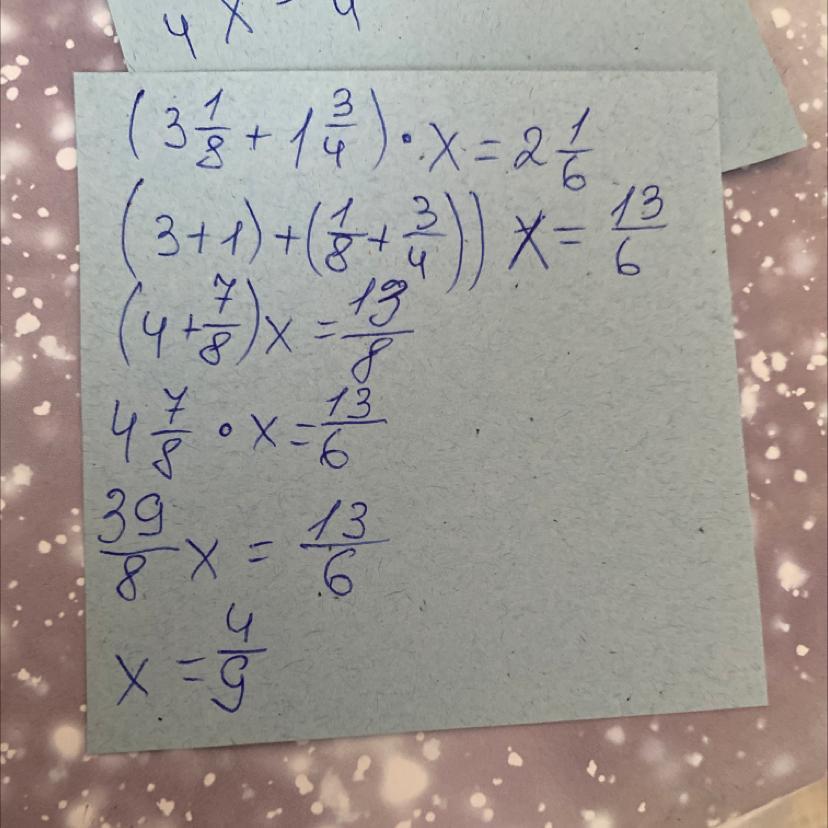 4 x - 4
(3 1/8 + 1 3/4) · x = 2 1/6
(3+1) + (1/8 + 3/4)) x = 13/6
(4 + 7/8) x = 13/8
4 7/8 · x = 13/6
39/8 x = 13/6
x = 4/9